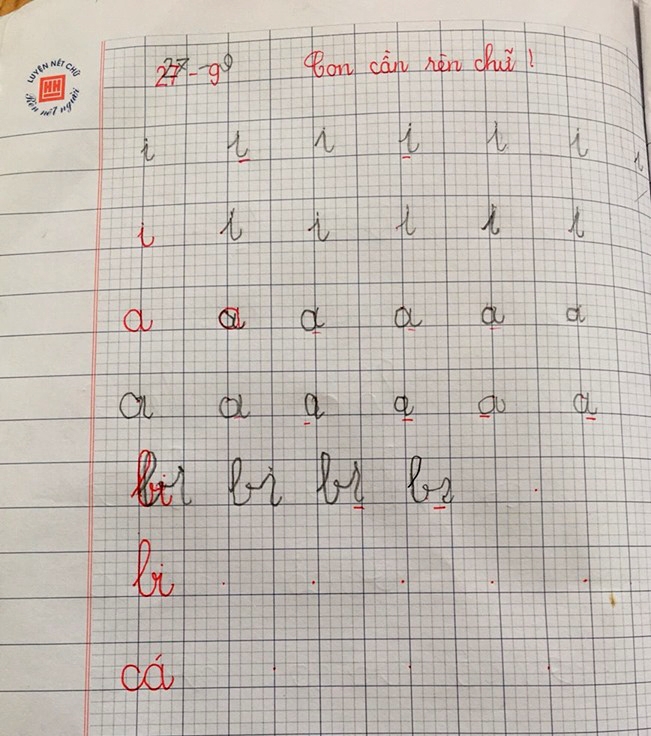 LUYỆN NÉT CHỮ
HN
Rèn nết người
27-9 Con cần rèn chữ!
i i i i i i i
i i i i i i
a a a a a a
a a a a a a
bi bi bi bi
bi
cá